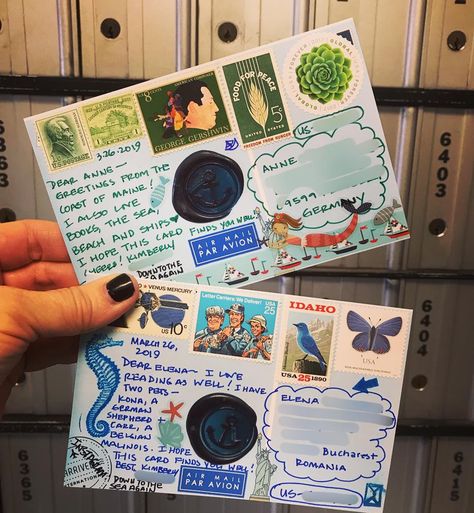 FOREVER GLOBAL
U.S. POSTAGE
8c
GEORGE GERSHWIN
FOOD FOR PEACE
5c
UNITED STATES
FREEDOM FROM HUNGER
3.26.2019
DEAR ANNE -
GREETINGS FROM THE
COAST OF MAINE!
I ALSO LOVE
BOOKS, THE SEA,
BEACH AND SHIPS
I HOPE THIS CARD FINDS YOU WELL!
CHEERS! KIMBERLY
DOWNTOTHE
SEAAGAIN
AIR MAIL
PAR AVION
US-
ANNE
49599
GERMANY
VENUS MERCURY
US 10c
Letter Carriers: We Deliver!
USA
25
IDAHO
USA 25 1890
USA
MARCH 26,
2019
DEAR ELENA - I LOVE
READING AS WELL! I HAVE
TWO PETS -
KONA, A
GERMAN
SHEPHERD +
CARR, A
BELGIAN
MALINOIS. I HOPE
THIS CARD FINDS YOU WELL!
BEST, KIMBERLY
DOWNTOTHE
SEAAGAIN
AIR MAIL
PAR AVION
ELENA
Bucharest
ROMANIA
US-
6402
6403
6404
6